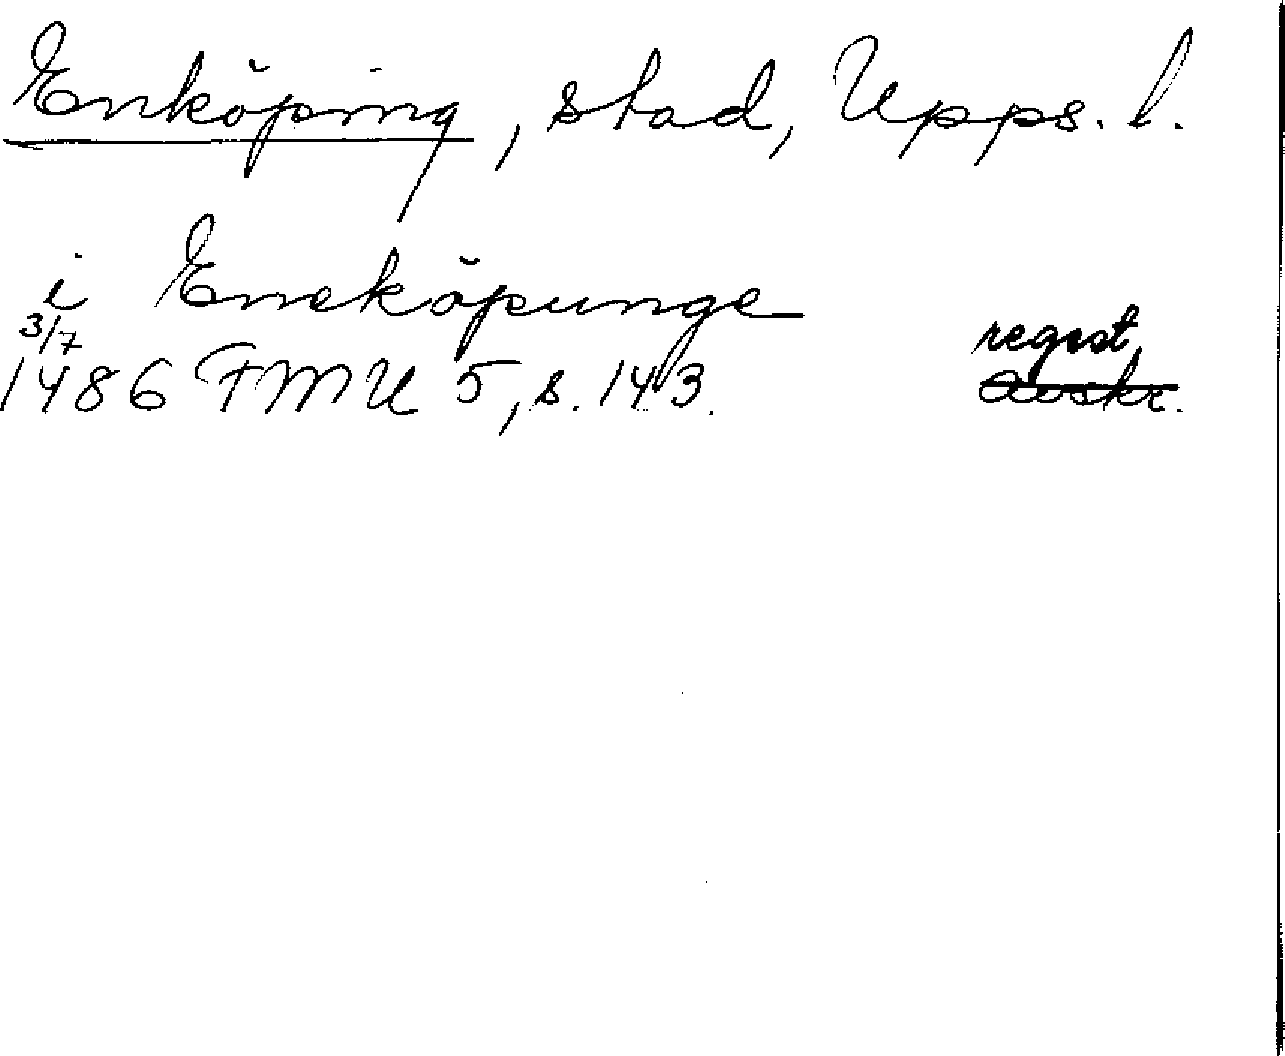 Enköping, stad, Upps. l.
i Eneköpunge
3/7
regest.
1486 FMU 5, s. 143. avskr.